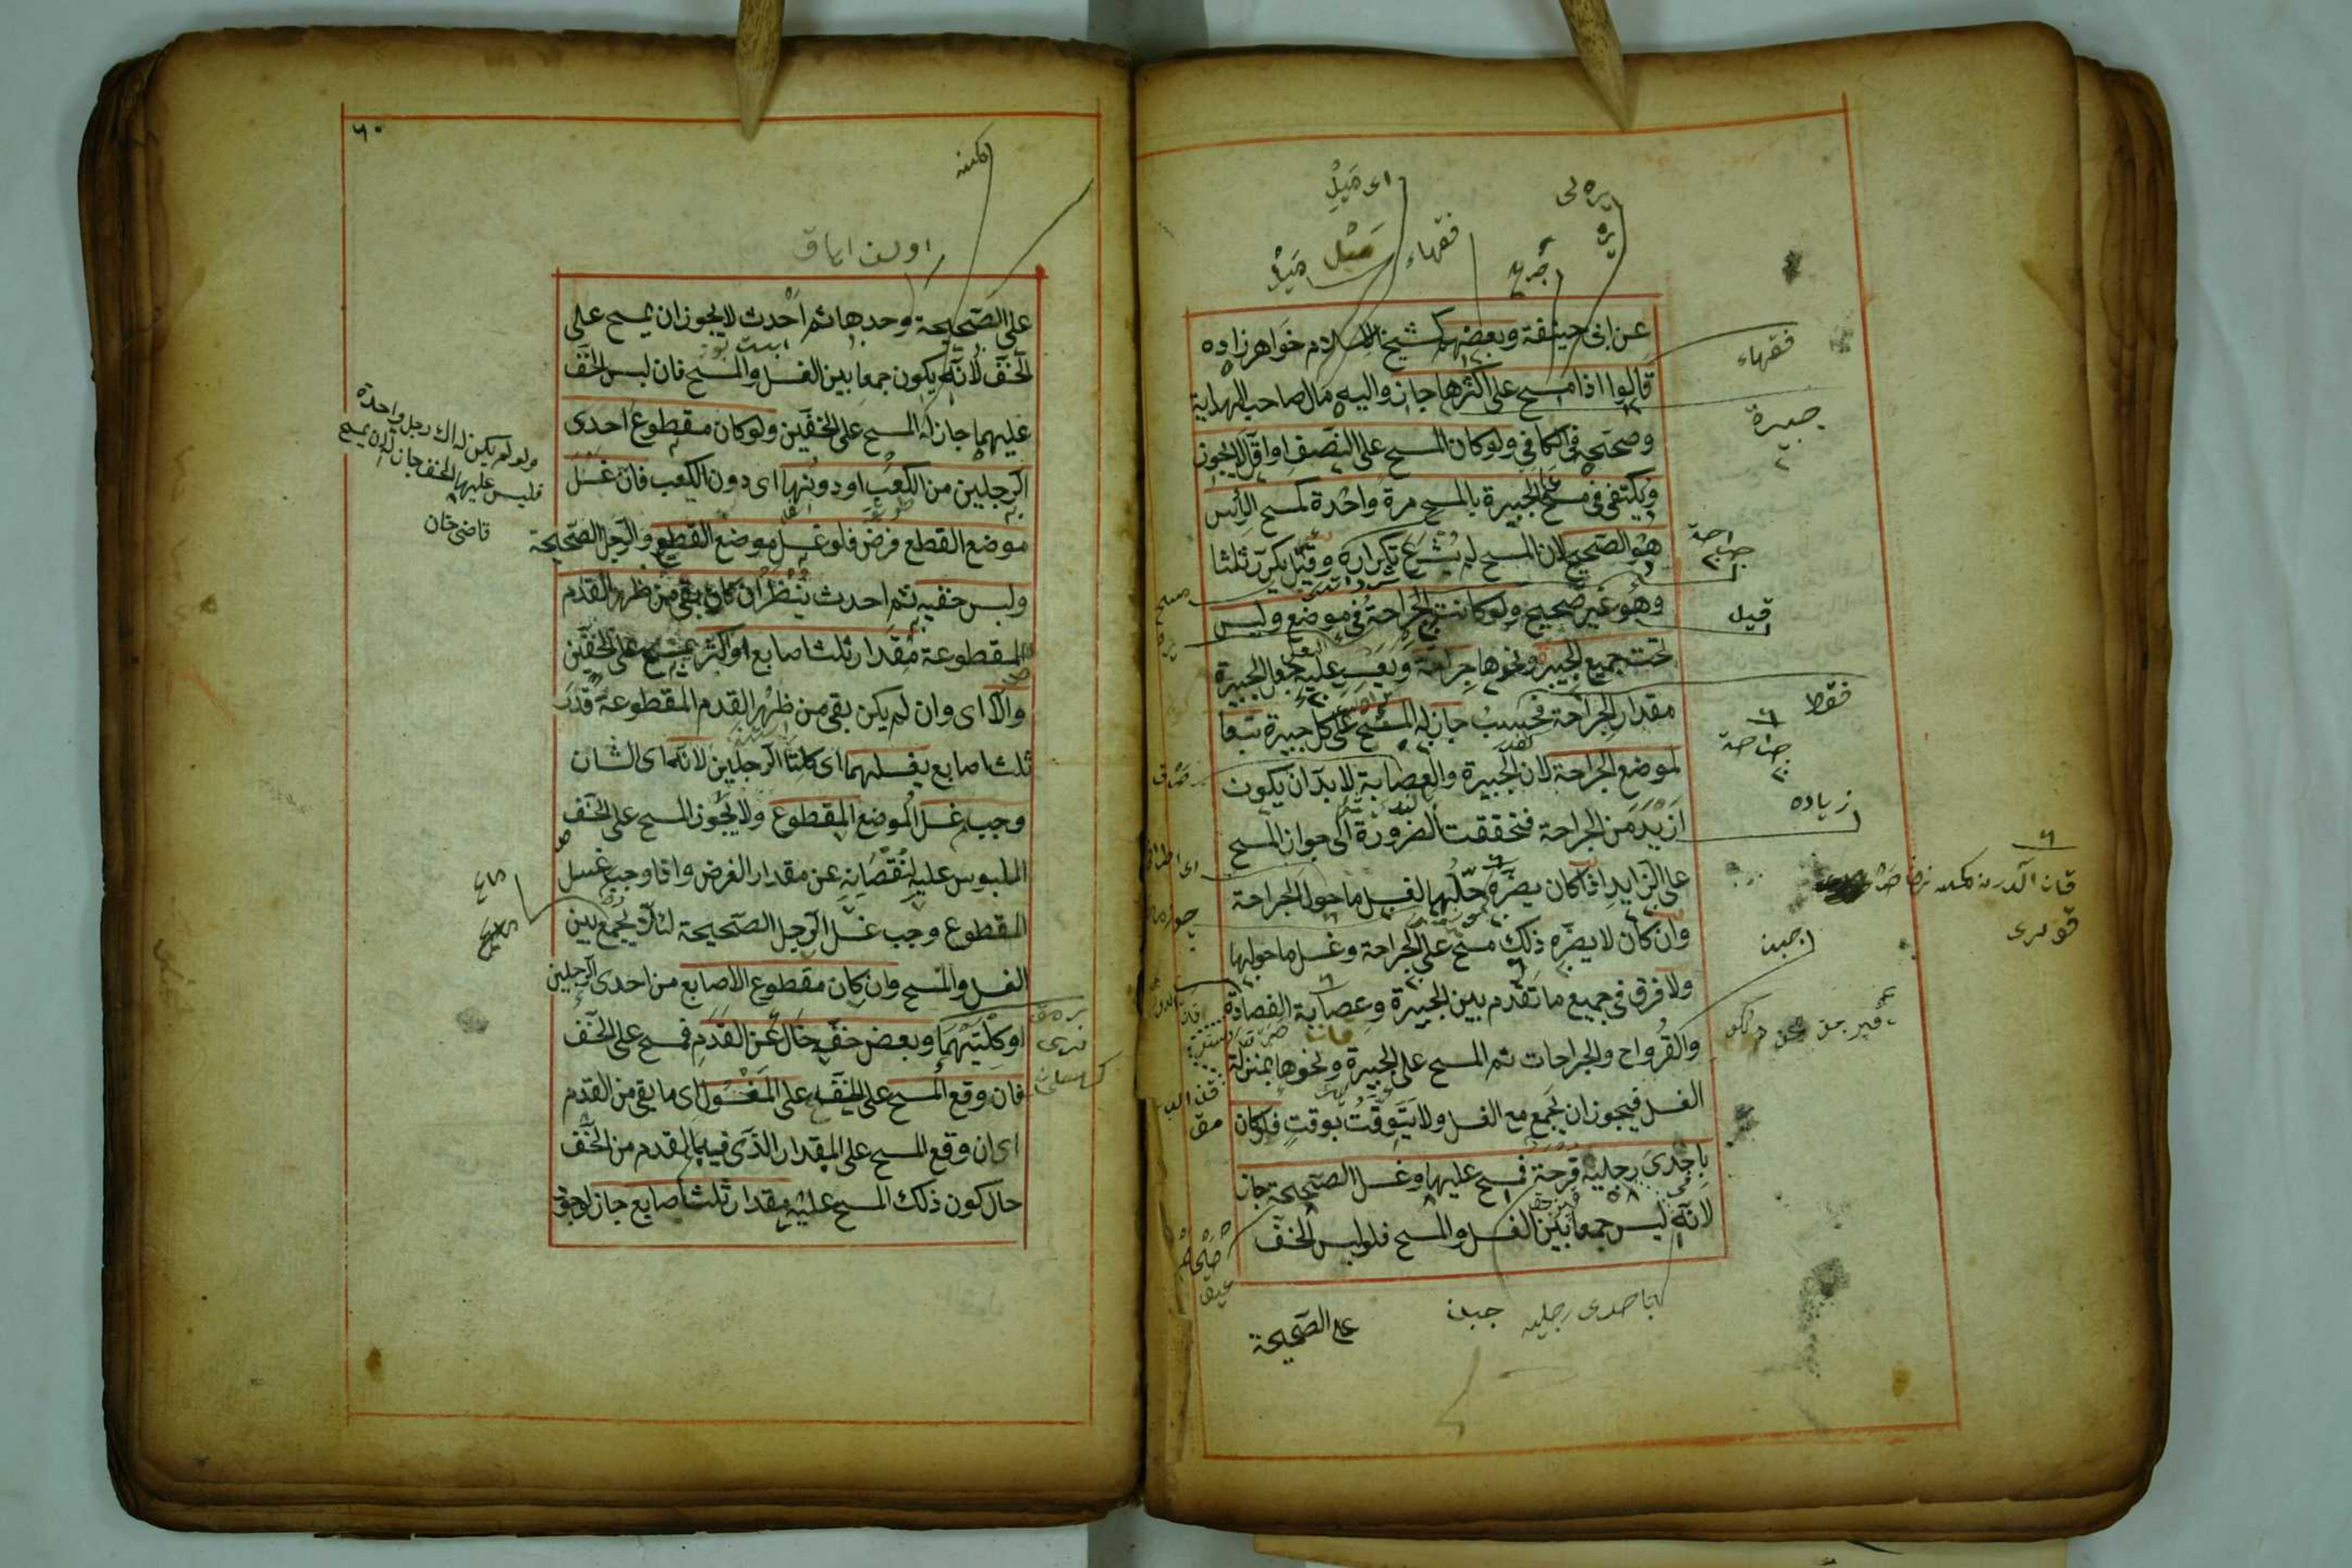 عن ابى حنيفة وبعضهم كشيخ الاسلام خواهرزاده
قالوا اذا مسح على اكثرها جاز واليه مال صاحب الهداية
وصححه فى الكافى ولو كان المسح على النصف او اقل لا يجوز
ويكتفى فى مسح الجبيرة بالمسح مرة واحدة كمسح الرأس
هو الصحيح لان المسح لم يشرع تكراره وقيل يكرر ثلثا
وهو غير صحيح ولو كانت الجراحة فى موضع وليس
تحت جميع الجبيرة ونحوها جراحة ويعسر عليه جعل الجبيرة
مقدار الجراحة فحسب جاز له المسح على كل جبيرة تبعا
لموضع الجراحة لان الجبيرة والعصابة لا بد ان يكون
ازيد من الجراحة فتحققت الضرورة الى جواز المسح
على الزايد اذا كان يضره حلها لغسل ما حول الجراحة
وان كان لا يضره ذلك مسح على الجراحة وغسل ما حولها
ولا فرق فى جميع ما تقدم بين الجبيرة وعصابة الفصادة
والقرواح والجراحات ثم المسح على الجبيرة ونحوها بمنزلة
الغسل فيجوز ان يجمع مع الغسل ولا يتوقت بوقت فلو كان
باحدى رجليه قرحة فمسح عليها وغسل الصحيحة جاز
لانه ليس جمعا بين الغسل والمسح فلو لبس الخف
على الصحيحة
اى ميل
فقهاء
فقهاء
جبيرة
قيل
فقط
جراحة
زياده
باحدى رجليه
٦٠
على الصحيحة وحدها ثم احدث لا يجوز ان يمسح على
الخف لانه يكون جمعا بين الغسل والمسح فان لبس الخف
عليهما جاز له المسح على الخفين ولو كان مقطوع احدى
الرجلين من الكعب او دونها اى دون الكعب فان غسل
موضع القطع فرض فلو غسل موضع القطع والرجل الصحيحة
ولبس خفيه ثم احدث ينظر ان كان بقى من ظهر القدم
المقطوعة مقدار ثلث اصابع او اكثر يمسح على الخفين
والا اى وان لم يكن بقى من ظهر القدم المقطوعة قدر
ثلث اصابع يغسلهما اى كلتا الرجلين لانه اى الشان
وجب غسل الموضع المقطوع ولا يجوز المسح على الخف
الملبوس عليه لنقصانه عن مقدار الفرض واذا وجب غسل
المقطوع وجب غسل الرجل الصحيحة لئلا يجمع بين
الغسل والمسح وان كان مقطوع الاصابع من احدى الرجلين
او كلتيهما وبعض خفه خال عن القدم فمسح على الخف
فان وقع المسح على الخف على المغسول اى ما بقى من القدم
اى ان وقع المسح على المقدار الذى فيه القدم من الخف
حال كون ذلك المسح عليه مقدار ثلث اصابع جاز لوجود
ولو لم يكن له الا رجل واحدة
فلبس عليها الخف جاز له ان يمسح
قاضى خان